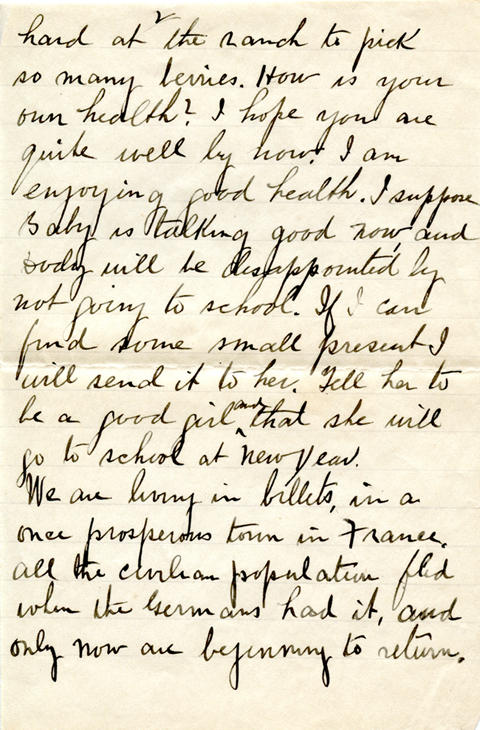 hard at the ranch to pick
so many berries. How is your
own health? I hope you are
quite well by now. I am
enjoying good health. I suppose
Baby is talking good now, and
Dody will be disappointed by
not going to school. If I can
find some small present I
will send it to her. Tell her to
be a good girl and that she will
go to school at New Year.
We are living in billets, in a
once prosperous town in France.
all the civilian population fled
when the Germans had it, and
only now are beginning to return.